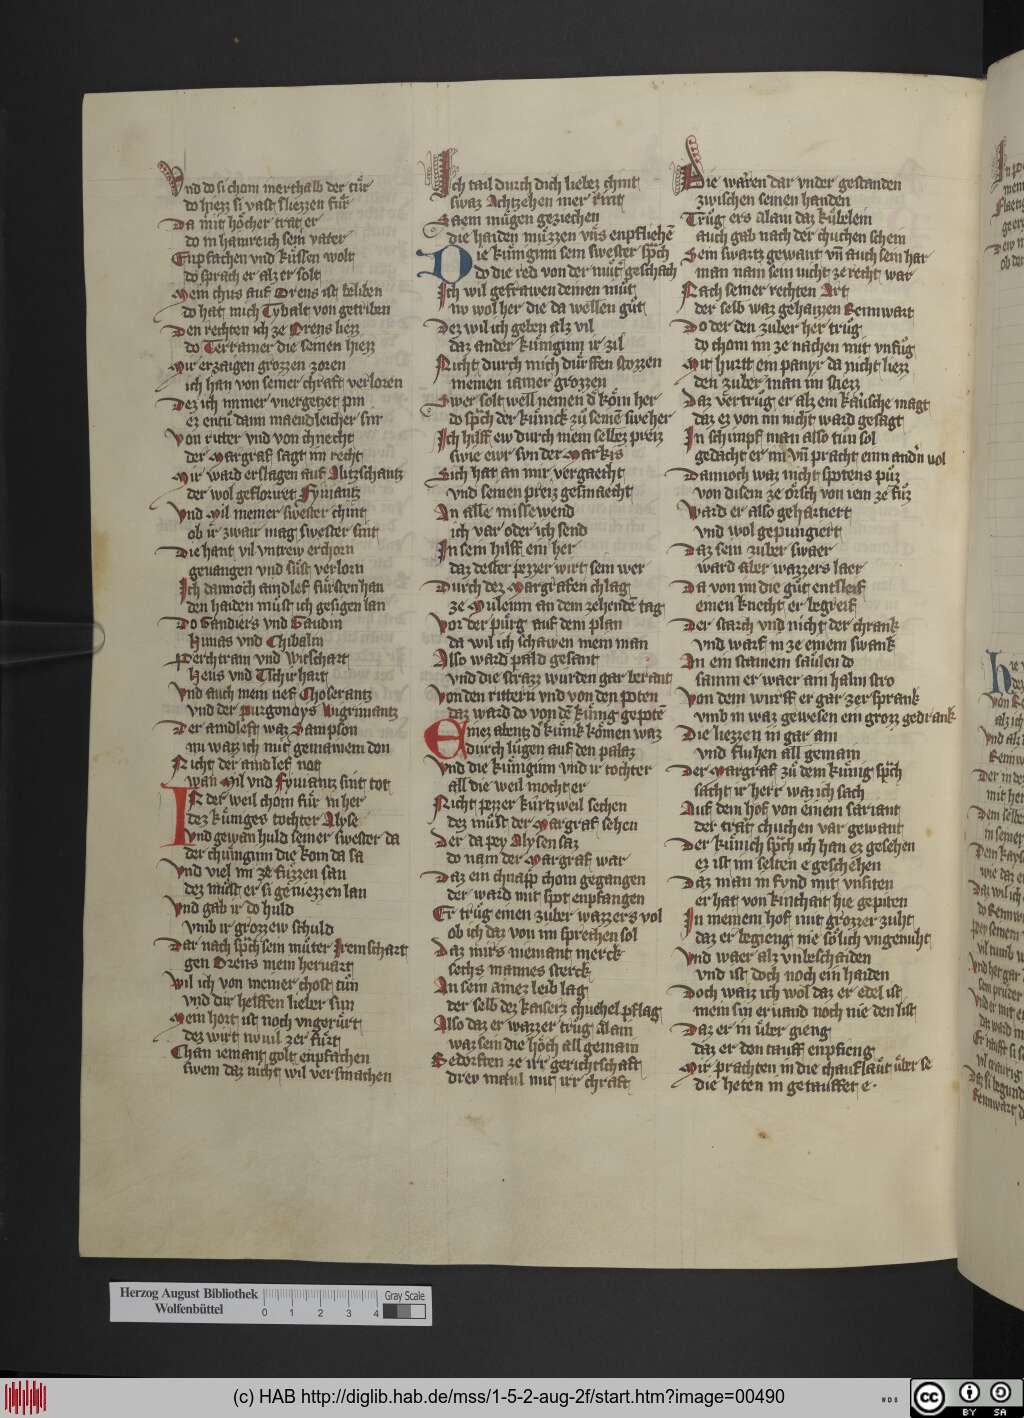 Vnd do si chom inerthalb der tür
do hiezz si vast sliezzen für
Da mit höcher trat er
do in hainreich sein vater
Enpfachen vnd küssen wolt
do sprach er alz er solt
Mein chus auf Orens ist beliben
do hat mich Tybalt von getriben
Den rechten ich ze Orens liezz
do Terramer die seinen hiezz
Mir erzaigen grozzen zoren
ich han von seiner chraft verloren
Dez ich nimer vnergetzet pin
ez entů dann maendleicher sin
Von ritter vnd von chnecht
der Margraf sagt im recht
Mir ward erslagen auf Alitzschantz
der wol geflorirt Fyuiantz
Vnd Mil meiner swester chint
ob ir zwair mag swester sint
Die hant vil vntrew erchorn
geuangen vnd süst verlorn
Ich dannoch aindlef fürsten han
den haiden müst ich gesigen lan
Do Gandiers vnd Gaudin
Hunas vnd Chibalin
Perchtram vnd Witschart
Heus vnd Tschirhart
Vnd auch mein nef Choserantz
vnd der Purgonoys Wigrimantz
Der aindleft waz Sampson
nu waiz ich mit gemainem don
Nicht der aindlef not
wan Mil vnd Fyuiantz sint tot
In der weil chom für in her
dez küniges tochter Alyse
Vnd gewan huld seiner swester da
der chünginn die kom da sa
Vnd viel im ze füzzen san
dez müst er si geniezzen lan
Vnd gab ir do huld
vmb ir grozzew schuld
Dar nach sprach sein müter Irmschart
gen Orens mein heruart
Wil ich von meiner chost tün
vnd dir helffen lieber sun
Mein hort ist noch vngerürt
dez wirt nu uil zer fürt
Chan iemant golt enpfachen
swem daz nicht wil versmachen
Ich tail durch dich liebez chint
swaz Achtzehen mer rint
Saem mügen geziechen
die haiden müzzen vns enpfliehen
Die künginn sein swester sprach
do die red von der müter geschach
Ich wil gefrawen deinen müt
nv wol her die da wellen güt
Dez wil ich geben alz vil
daz ander künginn ir zil
Nicht durch mich dürffen stozzen
meinen iamer grozzen
Swer solt well nemen d' kom her
do sprach der künick zü seinem sweher
Ich hilff ew durch mein selbez preiz
swie ewr svn der Markis
Sich hat an mir vergaecht
vnd seinen preiz gesmaecht
An alle missewend
ich var oder ich send
In sein hilff ein her
daz dester pezzer wirt sein wer
Durch dez Margrafen chlag
ze Muleun an dem zehenden tag
Vor der pürg auf dem plan
da wil ich schawen mein man
Also ward pald gesant
vnd die strazz wurden gar berant
Von den rittern vnd von den poten
daz ward do von dem küng gepoten
Einez abentz d' künik komen waz
durch lügen auf den palaz
Vnd die künginn vnd ir tochter
all die weil mocht er
Nicht pezzer kurtzweil sechen
dez müst der Margraf sehen
Der da pey Alysen saz
do nam der Margraf war
Daz ein chnapp chom gegangen
der ward mit spot enpfangen
Er trüg einen zuber wazzers vol
ob ich daz von im sprechen sol
Daz mirs niemant merck
sechs mannes sterck
An sein ainez leib lag
der selb dez kaisers chuchel pflag
Also daz er wazzer trüg alain
waz sein die höch all gemain
Bedorften ze irr gerichtschaft
drey maul mit irr chraft
Die waren dar vnder gestanden
zwischen seinen handen
Trüg ers alain daz kübelein
auch gab nach der chuchen schein
Sein swartz gewant vnd auch sein har
man nam sein nicht ze recht war
Nach seiner rechten Art
der selb waz gehaizzen Rennwart
Do der den zuber her trüg
do chom im ze nachen mit vnfüg
Mit hurtt ein panyr da nicht liezz
den zuber man im stiezz
Daz vertrüg er alz ein käusche magt
daz ez von im nicht ward gesagt
In schimpf man also tün sol
gedacht er im vnd pracht einn andern vol
Dannoch waz nicht spotens püz
von disem ze örsch von iem ze füz
Ward er also gehartiert
vnd wol gepungiert
Daz sein zuber swaer
ward aber wazzers laer
Da von im die güt entsleif
einen knecht er begreif
Der starch vnd nicht der chrank
vnd warf in ze einem swank
An ein stainein saülen do
samm er waer ain halm stro
Von dem wurff er gar zersprank
vmb in waz gewesen ein grozz gedrank
Die liezzen in gar ain
vnd fluhen all gemain
Der Margraf zü dem künig sprach
sacht ir herr waz ich sach
Auf dem hof von einem sariant
der trat chuchen var gewant
Der künich sprach ich han ez gesehen
ez ist im selten e geschehen
Daz man in fvnd mit vnsiten
er hat von kinthait hie gepiten
In meinem hof mit grozzer zuht
daz er begieng nie sölich vngenuht
Vnd waer alz vnbeschaiden
vnd ist doch noch ein haiden
Doch waiz ich wol daz er edel ist
mein sin eruand noch nie den list
Daz er in über gieng
daz er den tauff enpfieng
Mir prachten in die chauflaüt über se
die heten in getauffet e.
Herzog August Bibliothek
Wolfenbüttel
0 1 2 3 4
Gray Scale
(c) HAB http://diglib.hab.de/mss/1-5-2-aug-2f/start.htm?image=00490
WDB
cc BY SA